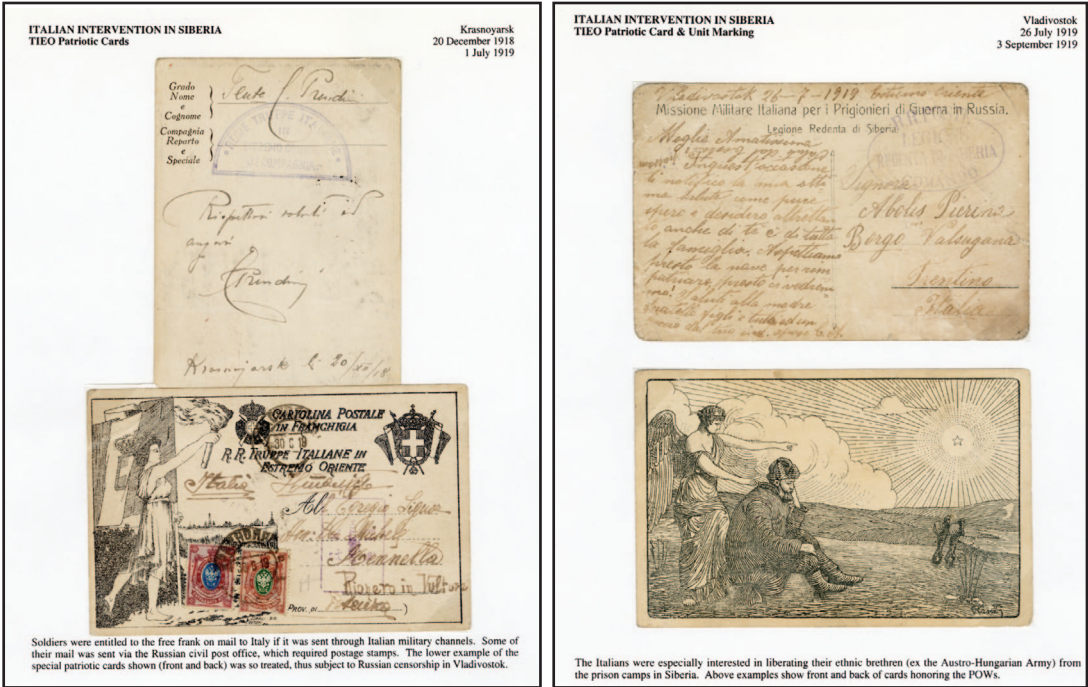 ITALIAN INTERVENTION IN SIBERIA
TIEO Patriotic Cards
Krasnoyarsk
20 December 1918
1 July 1919
Grado
Nome
e
Cognome
Compagnia
Reparto
e
Speciale
Rispettosi saluti ed
auguri
Krasnojarsk li 20/XII/18
CARTOLINA POSTALE
IN FRANCHIGIA
R.R. TRUPPE ITALIANE IN
ESTREMO ORIENTE
Italia
Rionero in Vulture
PROV. DI
Soldiers were entitled to the free frank on mail to Italy if it was sent through Italian military channels. Some of
their mail was sent via the Russian civil post office, which required postage stamps. The lower example of the
special patriotic cards shown (front and back) was so treated, thus subject to Russian censorship in Vladivostok.
ITALIAN INTERVENTION IN SIBERIA
TIEO Patriotic Card & Unit Marking
Vladivostok
26 July 1919
3 September 1919
Vladivostok 26-7-1919 Estremo Oriente
Missione Militare Italiana per i Prigionieri di Guerra in Russia.
Legione Redenta di Siberia
Moglie Amatissima
ti notifico la mia otti
ma salute come pure
spero e desidero altrettan
to anche di te e di tutta
la famiglia. Aspettiamo
presto la nave per rim
patriare, presto ci vedrem
Signora
Abolis Pierina
Borgo Valsugana
Trentino
Italia
COMANDO
The Italians were especially interested in liberating their ethnic brethren (ex the Austro-Hungarian Army) from
the prison camps in Siberia. Above examples show front and back of cards honoring the POWs.